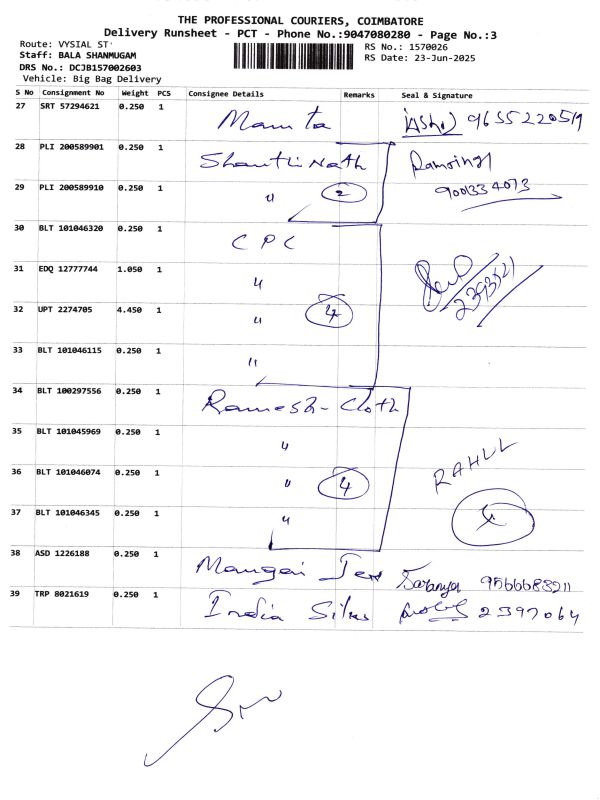 THE PROFESSIONAL COURIERS, COIMBATORE
Delivery Runsheet - PCT - Phone No.:9047080280 - Page No.:3
Route: VYSIAL ST
Staff: BALA SHANMUGAM
DRS No.: DCJB157002603
Vehicle: Big Bag Delivery
RS No.: 1570026
RS Date: 23-Jun-2025
S No Consignment No Weight PCS Consignee Details Remarks Seal & Signature
27 SRT 57294621 0.250 1 Mamta 9655220519
28 PLI 200589901 0.250 1 Shanti Nath
29 PLI 200589910 0.250 1 " 2 9001334073
30 BLT 101046320 0.250 1 C P C
31 EDQ 12777744 1.050 1 "
32 UPT 2274705 4.450 1 " 4
33 BLT 101046115 0.250 1 "
34 BLT 100297556 0.250 1 Ramesh - Cloth
35 BLT 101045969 0.250 1 "
36 BLT 101046074 0.250 1 " 4 RAHUL
37 BLT 101046345 0.250 1 "
38 ASD 1226188 0.250 1 Mangai Tex Saranya 9566683211
39 TRP 8021619 0.250 1 India Silks 2397064